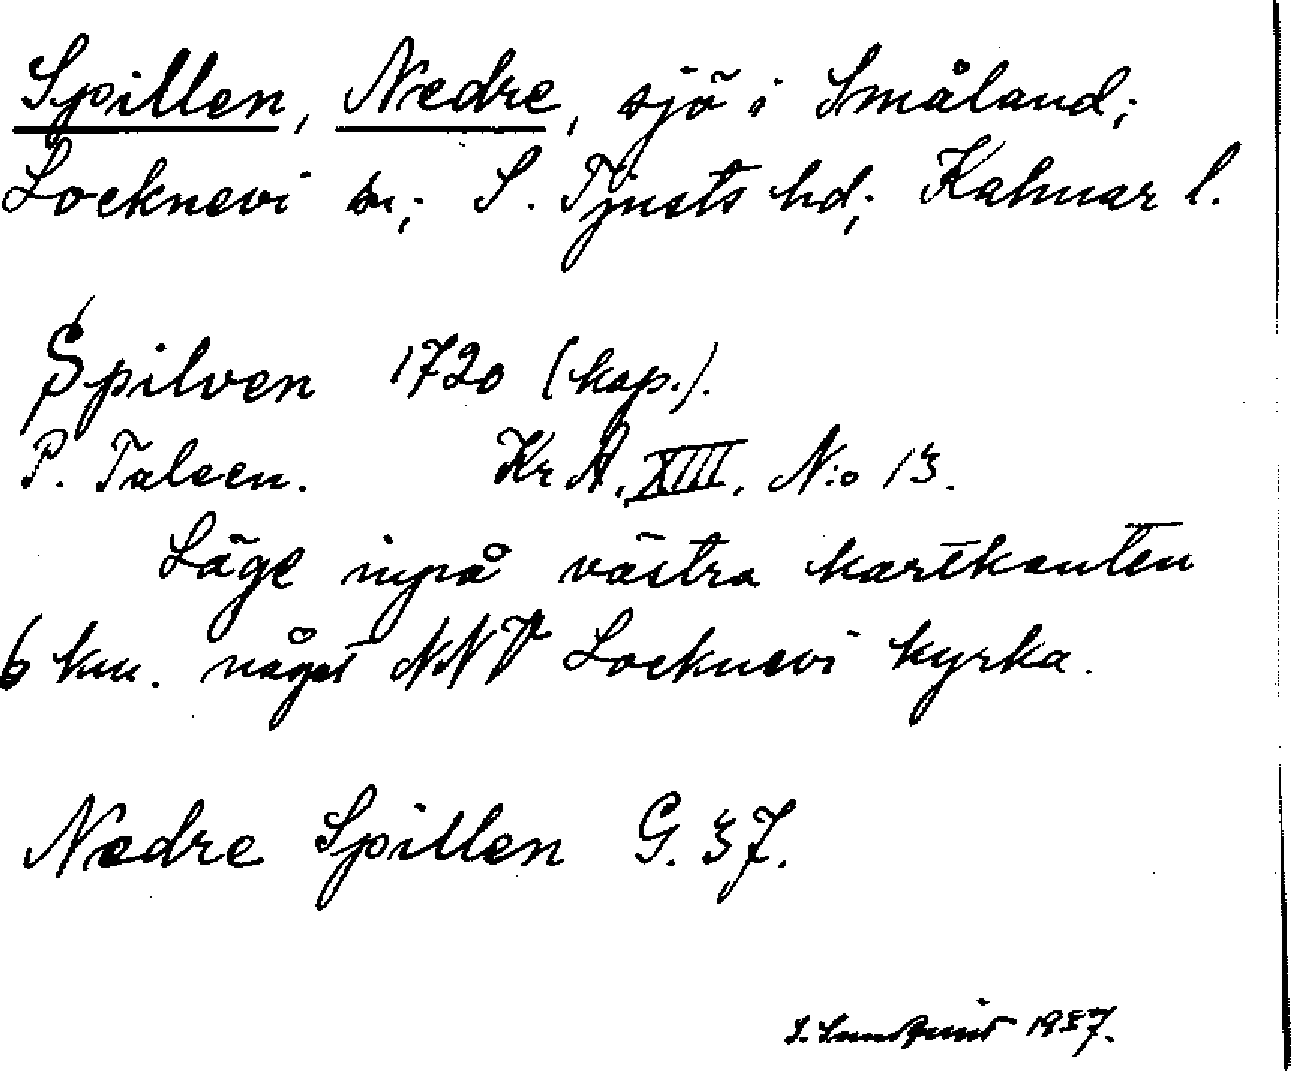 Spillen, Nedre, sjö i Småland;
Locknevi sn; S. Tjusts hd; Kalmar l.
Spilven 1720 (kop.).
P. Taleen. Kr A. XIII. N:o 13.
Läge inpå västra kartkanten
6 km. något NNV Locknevi kyrka.
Nedre Spillen G. 37.
1937.